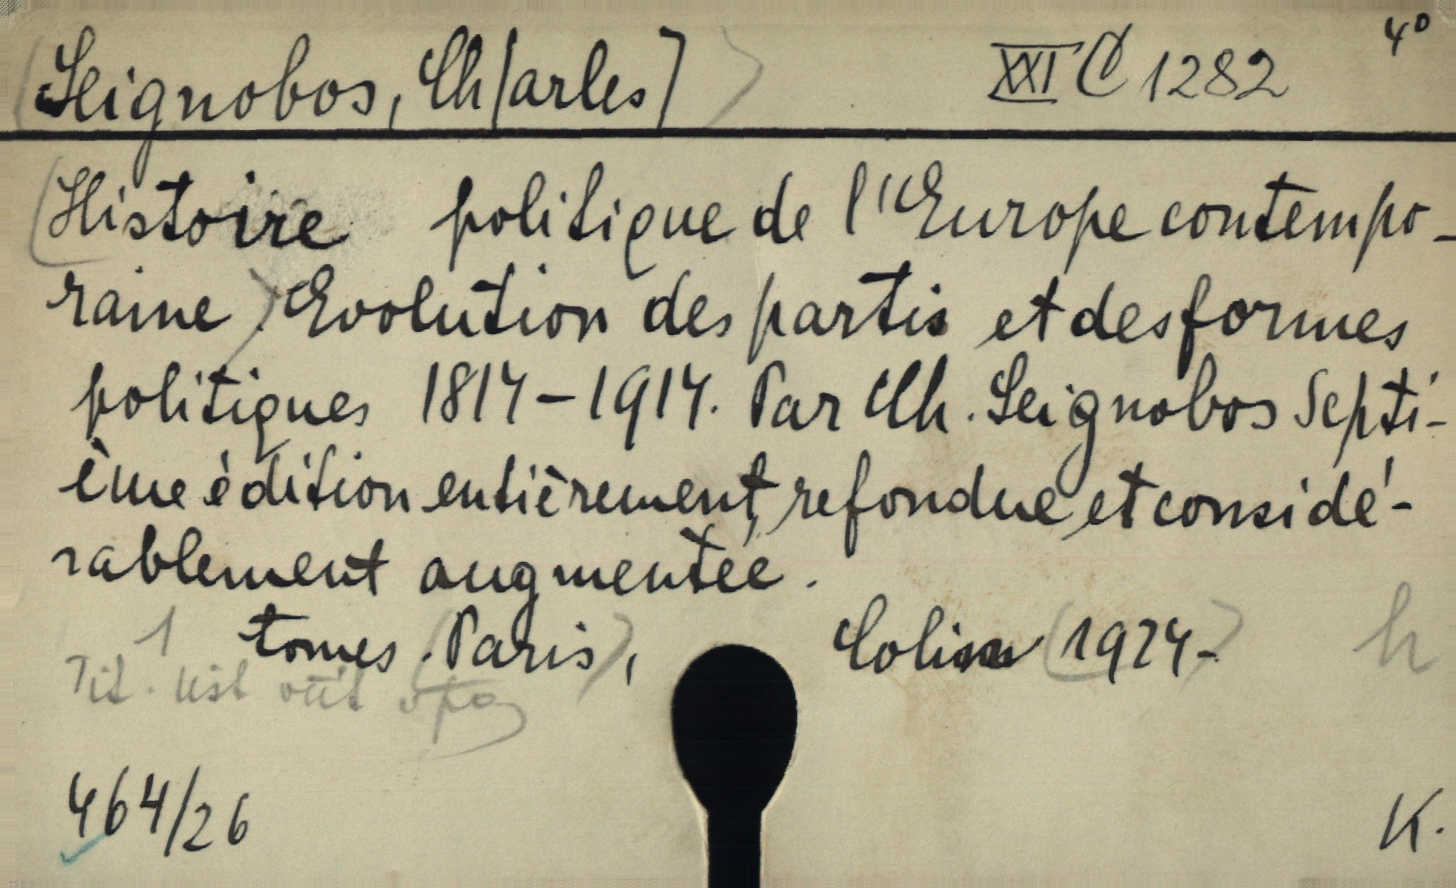 Seignobos, Ch[arles] XXI C 1282 4°
Histoire politique de l'Europe contempo-
raine. Evolution des partis et des formes
politiques 1814-1914. Par Ch. Seignobos Septi-
ème édition entièrement, refondue et considé-
rablement augmentée.
1 tomes. Paris, Colin 1924- h
464/26 K.